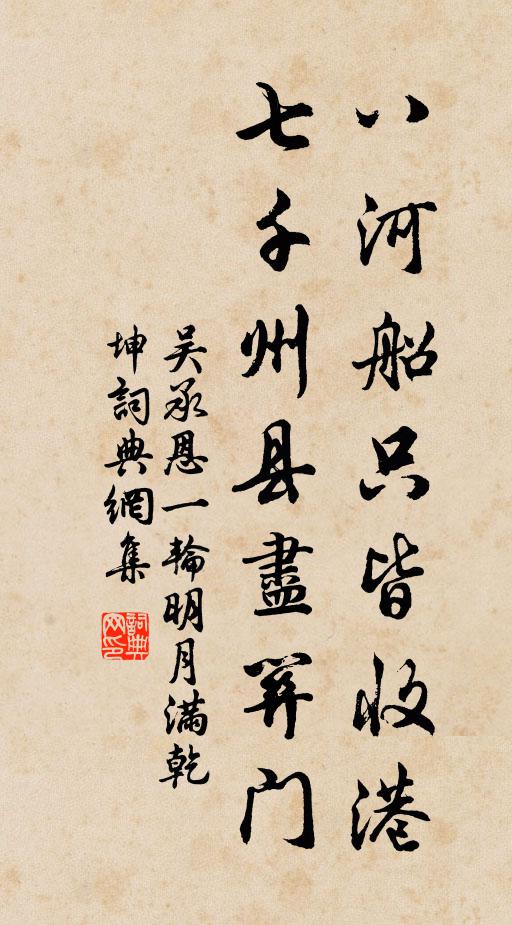 八河船只皆收港
七千州县盡关门
吴承恩一輪明月滿乾
坤詞典網集
詞典
网印